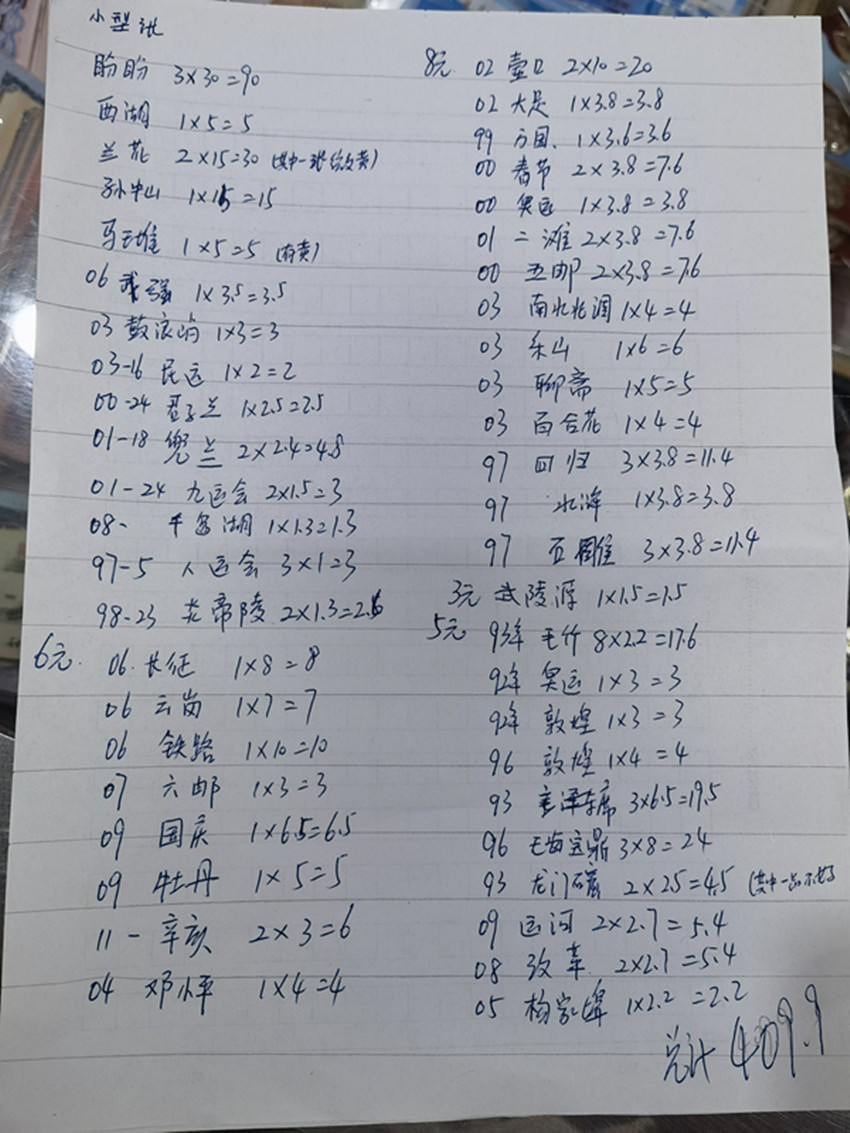 小型张
盼盼 3×30=90
西湖 1×5=5
兰花 2×15=30 (其中一张微黄)
孙中山 1×15=15
马王堆 1×5=5 (有黄)
06 1×3.5=3.5
03 鼓浪屿 1×3=3
03-16 民运 1×2=2
00-24 君子兰 1×2.5=2.5
01-18 兜兰 2×2.4=4.8
01-24 九运会 2×1.5=3
08- 千岛湖 1×1.3=1.3
97-5 八运会 3×1=3
98-23 炎帝陵 2×1.3=2.6
6元. 06. 长征 1×8=8
06 云岗 1×7=7
06 铁路 1×10=10
07 六邮 1×3=3
09 国庆 1×6.5=6.5
09 牡丹 1×5=5
11- 辛亥 2×3=6
04 邓小平 1×4=4
8元. 02 壶口 2×10=20
02 大足 1×3.8=3.8
99 万国. 1×3.6=3.6
00 春节 2×3.8=7.6
00 奥运 1×3.8=3.8
01 二滩 2×3.8=7.6
00 五邮 2×3.8=7.6
03 南水北调 1×4=4
03 乐山 1×6=6
03 聊斋 1×5=5
03 百合花 1×4=4
97 回归 3×3.8=11.4
97 水浒 1×3.8=3.8
97 3×3.8=11.4
3元 武陵源 1×1.5=1.5
5元 93年 毛竹 8×2.2=17.6
92年 奥运 1×3=3
92年 敦煌 1×3=3
96 敦煌 1×4=4
93 毛泽东 3×6.5=19.5
96 宝鼎 3×8=24
93 龙门石窟 2×25=45 (其中一
09 运河 2×2.7=5.4
08 改革 2×2.7=5.4
05 杨家埠 1×2.2=2.2
总计 409.9